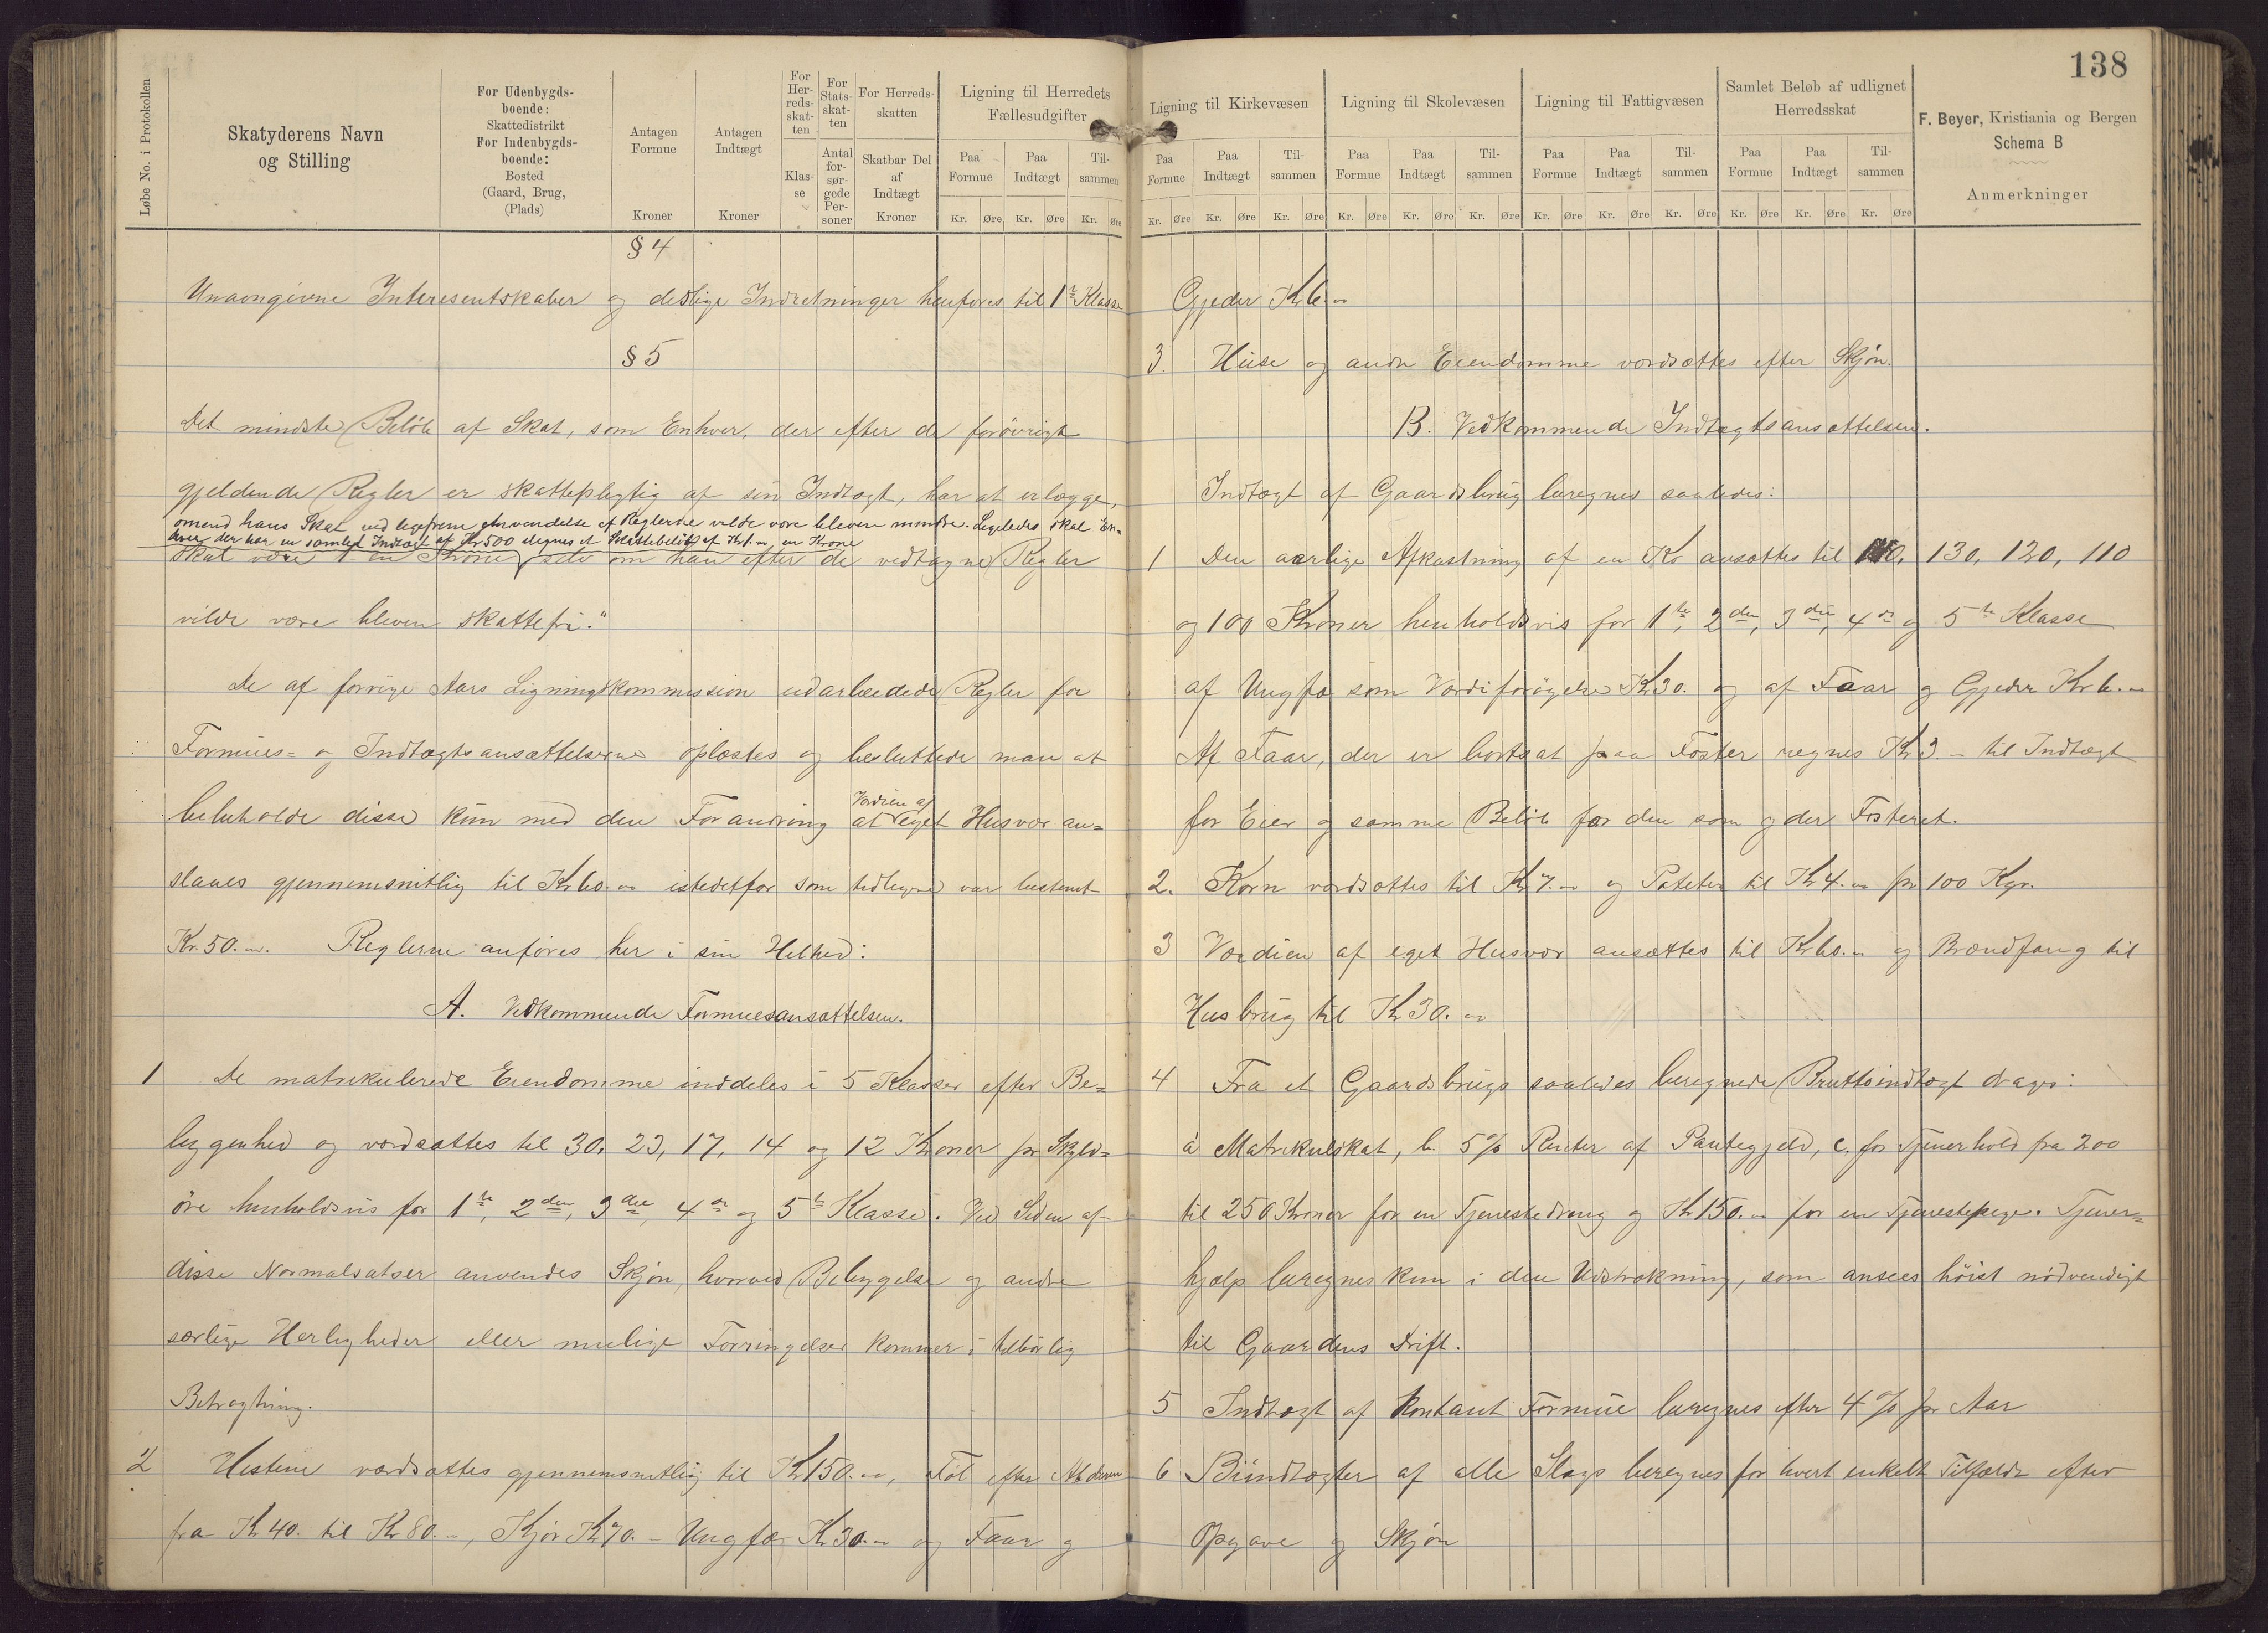 138
Løbe No. i Protokollen
Skatyderens Navn
og Stilling
For Udenbygds-
boende:
Skattedistrikt
For Indenbygds-
boende:
Bosted
(Gaard, Brug,
(Plads)
Antagen
Formue
Kroner
Antagen
Indtægt
Kroner
For
Her-
reds-
skat-
ten
Klas-
se
For
Stats-
skat-
ten
Antal
for-
sør-
gede
Per-
soner
For Herreds-
skatten
Skatbar Del
af
Indtægt
Kroner
Ligning til Herredets
Fællesudgifter
Paa
Formue
Paa
Indtægt
Til-
sammen
Kr. Øre Kr. Øre Kr. Øre
Ligning til Kirkevæsen
Paa
Formue
Paa
Indtægt
Til-
sammen
Kr. Øre Kr. Øre Kr. Øre
Ligning til Skolevæsen
Paa
Formue
Paa
Indtægt
Til-
sammen
Kr. Øre Kr. Øre Kr. Øre
Ligning til Fattigvæsen
Paa
Formue
Paa
Indtægt
Til-
sammen
Kr. Øre Kr. Øre Kr. Øre
Samlet Beløb af udlignet
Herredsskat
Paa
Formue
Paa
Indtægt
Til-
sammen
Kr. Øre Kr. Øre Kr. Øre
F. Beyer, Kristiania og Bergen
Schema B
Anmerkninger
§ 4
Unavngivne Interesentskaber og deslige Indretninger henføres til 1ste Klasse
§ 5
Det mindste Beløb af Skat, som Enhver, der efter de forøvrigt
gjeldende Regler er skattepligtig af sin Indtægt, har at erlægge,
omend hans Skat ved ligefrem Anvendelse af Reglerne vilde være bleven mindre. Ligeledes skal En-
hver, der har en samlet Indtægt af Kr 500 ilignes et Skattebeløb af Kr 1.- en Krone
skal være 1 en Krone, selv om han efter de vedtagne Regler
vilde være bleven skattefri."
De af forrige Aars Ligningskommission udarbeidede Regler for
Formues- og Indtægtsansættelserne oplæstes og besluttede man at
beholde disse kun med den Forandring at Værdien af eget Husvær an-
slaaes gjennemsnitlig til Kr 60.- istedetfor som tidligere var bestemt
Kr. 50.-. Reglerne anføres her i sin Helhed:
A. Vedkommende Formuesansættelsen.
1 De matrikulerede Eiendomme inddeles i 5 Klasser efter Be-
liggenhed og værdsættes til 30, 23, 17, 14 og 12 Kroner pr Skyld-
øre henholdsvis for 1ste, 2den, 3die, 4de og 5te Klasse. Ved Siden af
disse Normalsatser anvendes Skjøn, hvorved Bebyggelse og andre
særlige Herligheder eller mulige Forringelser kommer i tilbørlig
Betragtning.
2 Hestene værdsættes gjennemsnitlig til Kr 150.-, Føl efter Alderen
fra Kr 40. til Kr 80.-, Kjør Kr 70.- Ungfæ Kr 30.- og Faar og
Gjeder Kr 6.-
3. Huse og andre Eiendomme værdsættes efter Skjøn.
B. Vedkommende Indtægtsansættelsen.
Indtægt af Gaardsbrug beregnes saaledes:
1 Den aarlige Afkastning af en Ko ansættes til 140, 130, 120, 110
og 100 Kroner henholdsvis for 1ste, 2den, 3die, 4de og 5te Klasse
af Ungfæ som Værdiforøgelse Kr 30. og af Faar og Gjeder Kr 6.-
Af Faar, der er bortsat paa Foster regnes Kr 3.- til Indtægt
for Eier og samme Beløb for den som gder Fosteret.
2. Korn værdsættes til Kr 7.- og Poteter til Kr 4.- pr 100 Kgr.
3 Værdien af eget Husvær ansættes til Kr 60.- og Brændfang til
Husbrug til Kr 30.-
4 Fra et Gaardsbrugs saaledes beregnede Bruttoindtægt drages:
a Matrikulskat, b. 5 % Renter af Pantegjeld, c. for Tjenerhold fra 200
til 250 Kroner for en Tjenestedreng og Kr 150.- for en Tjenestepige. Tjener-
hjælp beregnes kun i den Udstrækning, som ansees høist nødvendigt
til Gaardens Drift.
5 Indtægt af Kontant Formue beregnes efter 4 % pr Aar
6 Biindtægter af alle Slags beregnes for hvert enkelt Tilfælde efter
Opgave og Skjøn